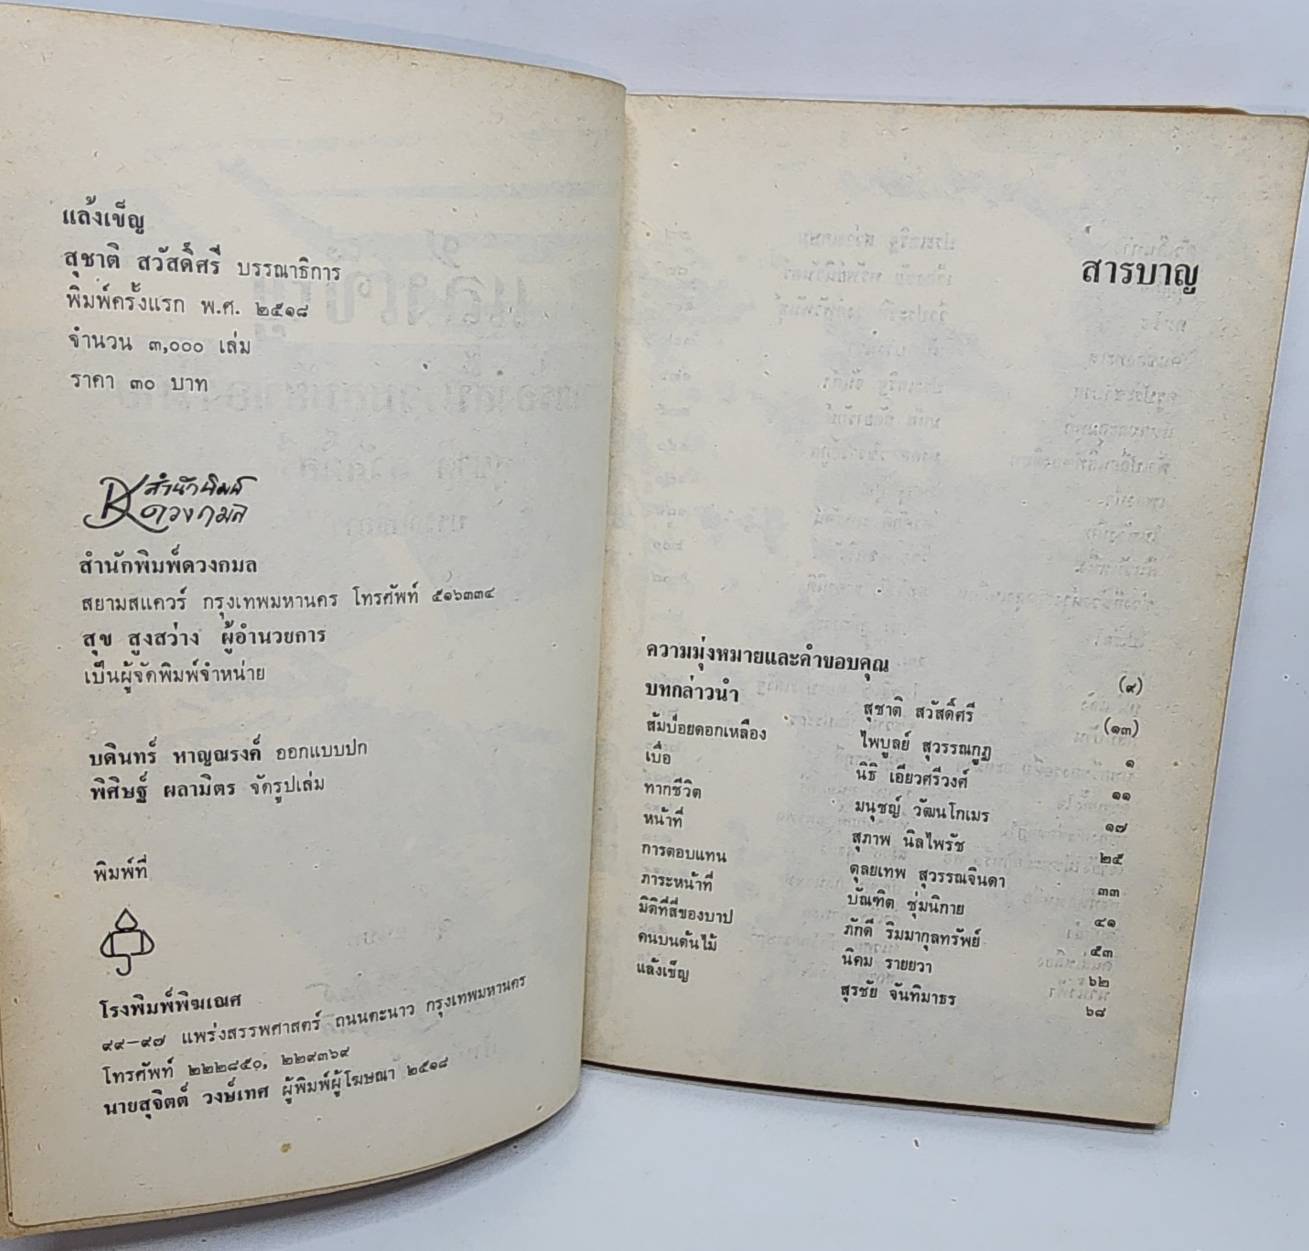 แล้งเข็ญ
สุชาติ สวัสดิ์ศรี บรรณาธิการ
พิมพ์ครั้งแรก พ.ศ. ๒๕๑๘
จำนวน ๓,๐๐๐ เล่ม
ราคา ๓๐ บาท
สำนักพิมพ์
ดวงกมล
สำนักพิมพ์ดวงกมล
สยามสแควร์ กรุงเทพมหานคร โทรศัพท์ ๕๑๖๓๓๔
สุข สูงสว่าง ผู้อำนวยการ
เป็นผู้จัดพิมพ์จำหน่าย
บดินทร์ หาญณรงค์ ออกแบบปก
พิศิษฐ์ ผลามิตร จัดรูปเล่ม
พิมพ์ที่
โรงพิมพ์พิฆเณศ
๙๙-๙๗ แพร่งสรรพศาสตร์ ถนนตะนาว กรุงเทพมหานคร
โทรศัพท์ ๒๒๒๘๕๐, ๒๒๙๓๖๙
นายสุจิตต์ วงษ์เทศ ผู้พิมพ์ผู้โฆษณา ๒๕๑๘
สารบาญ
ความมุ่งหมายและคำขอบคุณ (๙)
บทกล่าวนำ สุชาติ สวัสดิ์ศรี (๑๓)
ส้มป่อยดอกเหลือง ไพบูลย์ สุวรรณกูฏ ๑
เบื่อ นิธิ เอียวศรีวงศ์ ๑๑
ทากชีวิต มนุชญ์ วัฒนโกเมร ๑๗
หน้าที่ สุภาพ นิลไพรัช ๒๕
การตอบแทน ดุลยเทพ สุวรรณจินดา ๓๓
ภาระหน้าที่ บัณฑิต ชุ่มนิกาย ๔๑
มิติที่สี่ของบาป ภักดี ริมมากุลทรัพย์ ๕๓
คนบนต้นไม้ นิคม รายยวา ๖๒
แล้งเข็ญ สุรชัย จันทิมาธร ๖๘